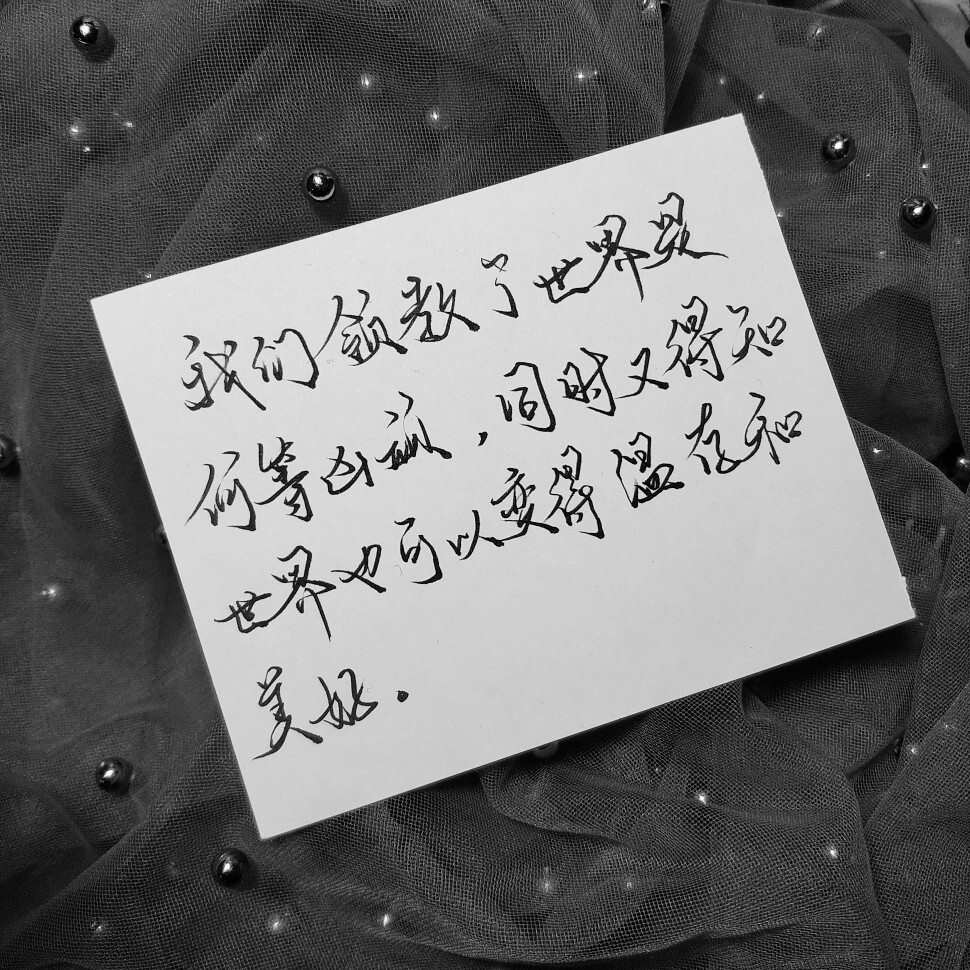 我们领教了世界是
何等凶顽，同时又得知
世界也可以变得温存和
美好。